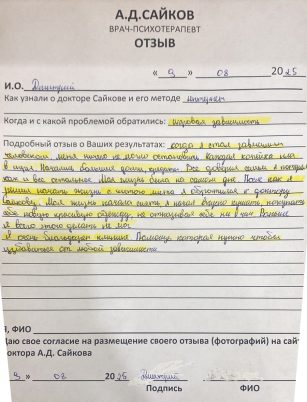 А.Д.САЙКОВ
ВРАЧ-ПСИХОТЕРАПЕВТ
ОТЗЫВ
« 9 » 08 2025
И.О. Дмитрий
Как узнали о докторе Сайкове и его методе интернет
Когда и с какой проблемой обратились: игровая зависимость
Подробный отзыв о Ваших результатах: когда я стал зависимым
человеком меня ничего не могло остановить каждая копейка шла
в игру. Начались большие долги, кредиты. Все доверие семьи я потерял
как и все остальное. Моя жизнь была на самом дне. После как я
решил начать жизнь с чистого листа я обратился к доктору
Сайкову. Моя жизнь начала сиять я начал вкусно кушать, покупать
себе новую красивую одежду, не отказывая себе ни в чем. Раньше
я всего этого делать не мог.
Я очень благодарен клинике. Помощь, которая нужна чтобы
избавиться от любой зависимости.
Я, ФИО
Даю свое согласие на размещение своего отзыва (фотографий) на сайт
доктора А.Д. Сайкова
9 » 08 2025 Дмитрий
Подпись ФИО